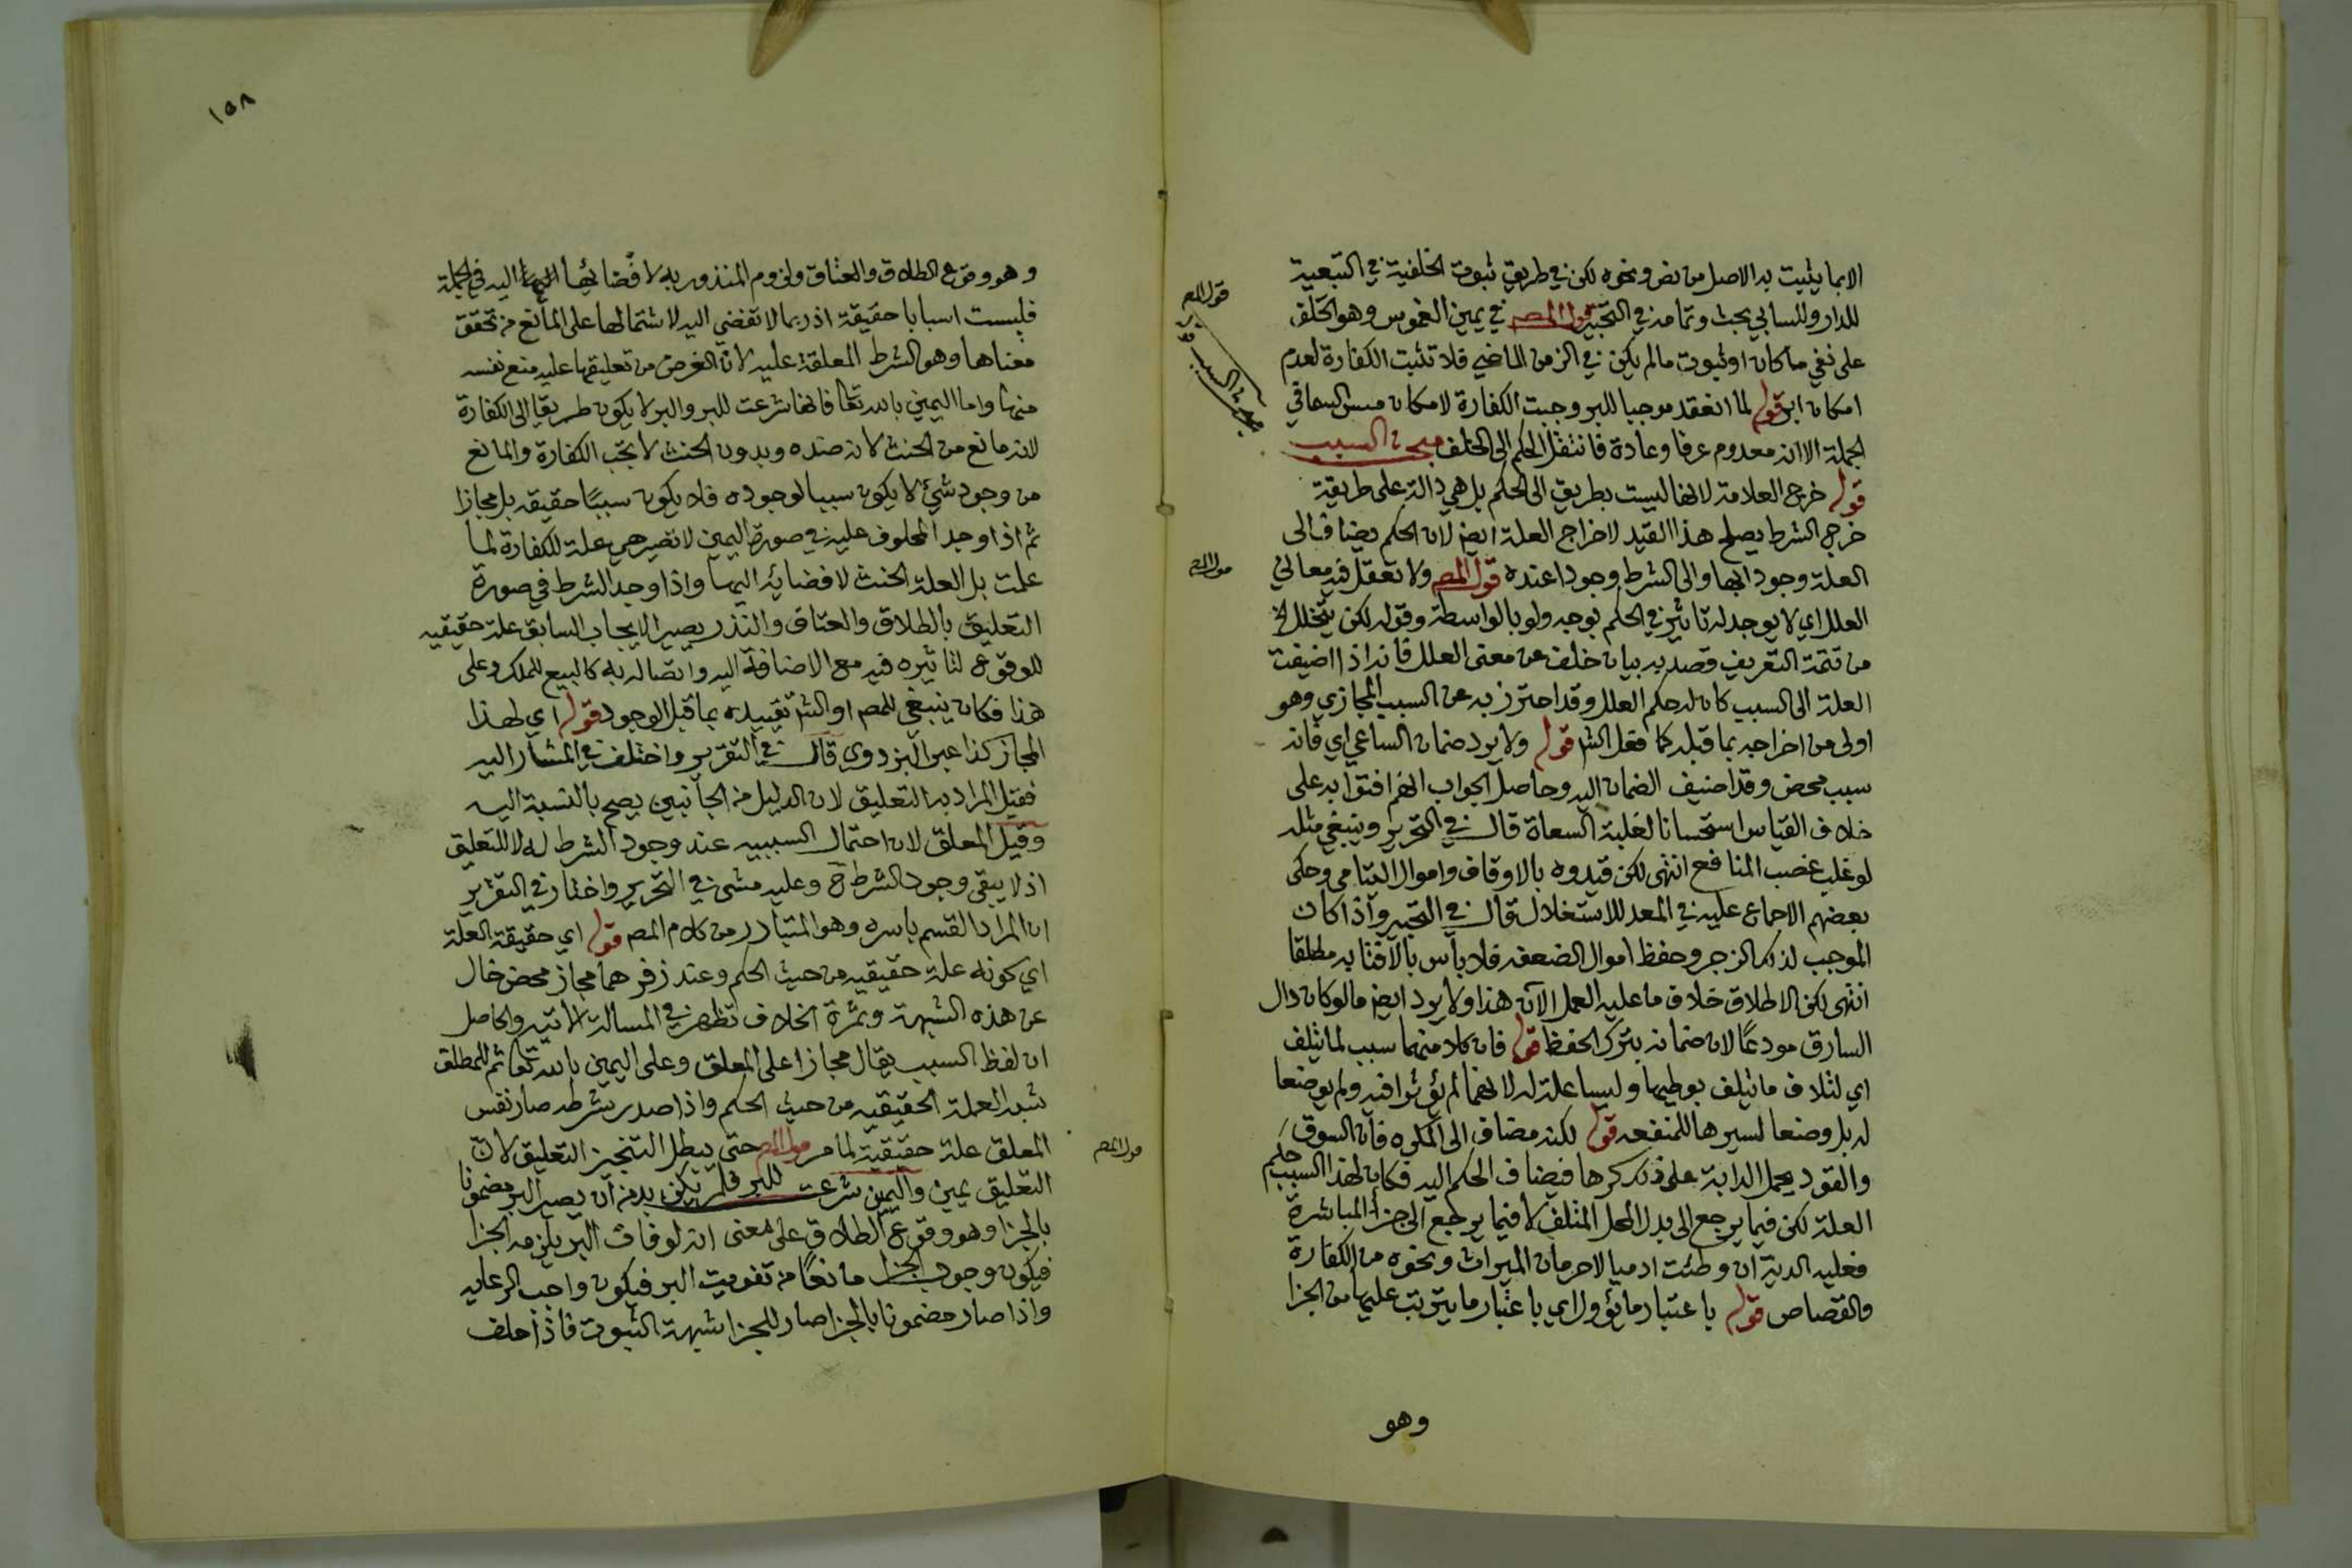 الا بما يثبت به الاصل من نص ونحوه لكن في طريق ثبوت الخلفية في التبعية
للدار وللسابي بحث وتمامه في التحبير قول المص في يمين الغموس وهو الحلف
على نفي ما كان او ثبوت ما لم يكن في الزمن الماضي فلا تثبت الكفارة لعدم
امكان البر قوله لما انعقد موجبا للبر وجبت الكفارة لامكان مس السما في
الجملة الا انه معدوم عرفا وعادة فانتقل الحكم الى الخلف مبحث السبب
قوله خرج العلامة لانها ليست بطريق الى الحكم بل هي دالة على طريقة
خرج الشرط يصلح هذا القيد لاخراج العلة ايض لان الحكم يضاف الى
العلة وجودا بها والى الشرط وجودا عنده قول المص ولا تعقل فيه معاني
العلل اي لا يوجد له تاثير في الحكم بوجه ولو بالواسطة وقوله لكن يتخلل الخ
من تتمة التعريف قصد به بيان خلف عن معنى العلل فانه اذا اضيفت
العلة الى السبب كان له حكم العلل وقد احترز به عن السبب المجازي وهو
اولى من اخراجه بما قبله كما فعل الش قوله ولا يرد ضمان الساعي اي فانه
سبب محض وقد اضيف الضمان اليه وحاصل الجواب انهم افتوا به على
خلاف القياس استحسانا لغلبة السعاة قال في التحرير وينبغي مثله
لو غلب غصب المنافع انتهى لكن قيدوه بالاوقاف واموال اليتامى وحكى
بعضهم الاجماع عليه في المعد للاستغلال قال في التحبير واذا كان
الموجب لذلك الزجر وحفظ اموال الضعفه فلا بأس بالافتا به مطلقا
انتهى لكن الاطلاق خلاف ما عليه العمل الآن هذا ولا يرد ايض ما لو كان دال
السارق مودعًا لان ضمانه بترك الحفظ قوله فان كلا منهما سبب لما يتلف
اي لتلاف ما يتلف بوطيها وليسا علة له لانهما لم يؤثرا فيه ولم يوضعا
له بل وضعا لسيرها للمنفعه قوله لكنه مضاف الى المكره فان السوق
والقود يحمل الدابة على ذلك كرها فيضاف الحكم اليه فكان لهذا السبب حكم
العلة لكن فيما يرجع الى بدل المحل المتلف لا فيما يرجع الى جزأ المباشرة
فعليه الدية ان وطئت ادميا لا حرمان الميراث ونحوه من الكفارة
والقصاص قوله باعتبار ما يؤول اي باعتبار ما يترتب عليها من الجزا
وهو
قول المص
مبحث السبب
قول المص
١٥٨
وهو وقوع الطلاق والعتاق ولزوم المنذور به لافضائها اليه في الجملة
فليست اسبابا حقيقة اذ ربما لا تفضي اليه لاشتمالها على المانع من تحقق
معناها وهو الشرط المعلقة عليه لان الغرض من تعليقها عليه منع نفسه
منها واما اليمين بالله تعا فانها شرعت للبر والبر لا يكون طريقا الى الكفارة
لانه مانع من الحنث لانه ضده وبدون الحنث لا تجب الكفارة والمانع
من وجود شئ لا يكون سببا لوجوده فلا يكون سببًا حقيقه بل مجازا
ثم اذا وجد المحلوف عليه في صورة اليمين لا تصير هي علة للكفارة لما
علمت بل العلة الحنث لافضائه اليها واذا وجد الشرط في صورة
التعليق بالطلاق والعتاق والنذر يصير الايجاب السابق علة حقيقيه
للوقوع لتاثيره فيه مع الاضافة اليه واتصاله به كالبيع للملك وعلى
هذا فكان ينبغي للمص او الش تقييده بما قبل الوجود قوله اي لهذا
المجاز كذا عبر البزدوي قال في التقرير واختلف في المشار اليه
فقيل المراد به التعليق لان الدليل من الجانبين يصح بالنسبة اليه
وقيل المعلق لان احتمال السببيه عند وجود الشرط له لا للتعليق
اذ لا يبقى وجود الشرط ح وعليه مشى في التحرير واختار في التقرير
ان المراد القسم باسره وهو المتبادر من كلام المص قوله اي حقيقة العلة
اي كونه علة حقيقيه من حيث الحكم وعند زفر هما مجاز محض خال
عن هذه الشبهة وثمرة الخلاف تظهر في المسالة الاتيه والحاصل
ان لفظ السبب يقال مجازا على المعلق وعلى اليمين بالله تعا ثم للمطلق
شبه العلة الحقيقيه من حيث الحكم واذا صدر شرطه صار نفس
المعلق علة حقيقية لما مر قول المص حتى يبطل التنجيز التعليق لانّ
التعليق يمين واليمين شرعت للبر فلم يكن بد من ان يصير البر مضمونا
بالجزا وهو وقوع الطلاق على معنى انه لو فات البر يلزمه الجزا
فيكون وجوب الجزا مانعًا من تفويت البر فيكون واجب الرعايه
واذا صار مضمونا بالجزا صار للجزا شبهة الثبوت فاذا حلف
قول المص